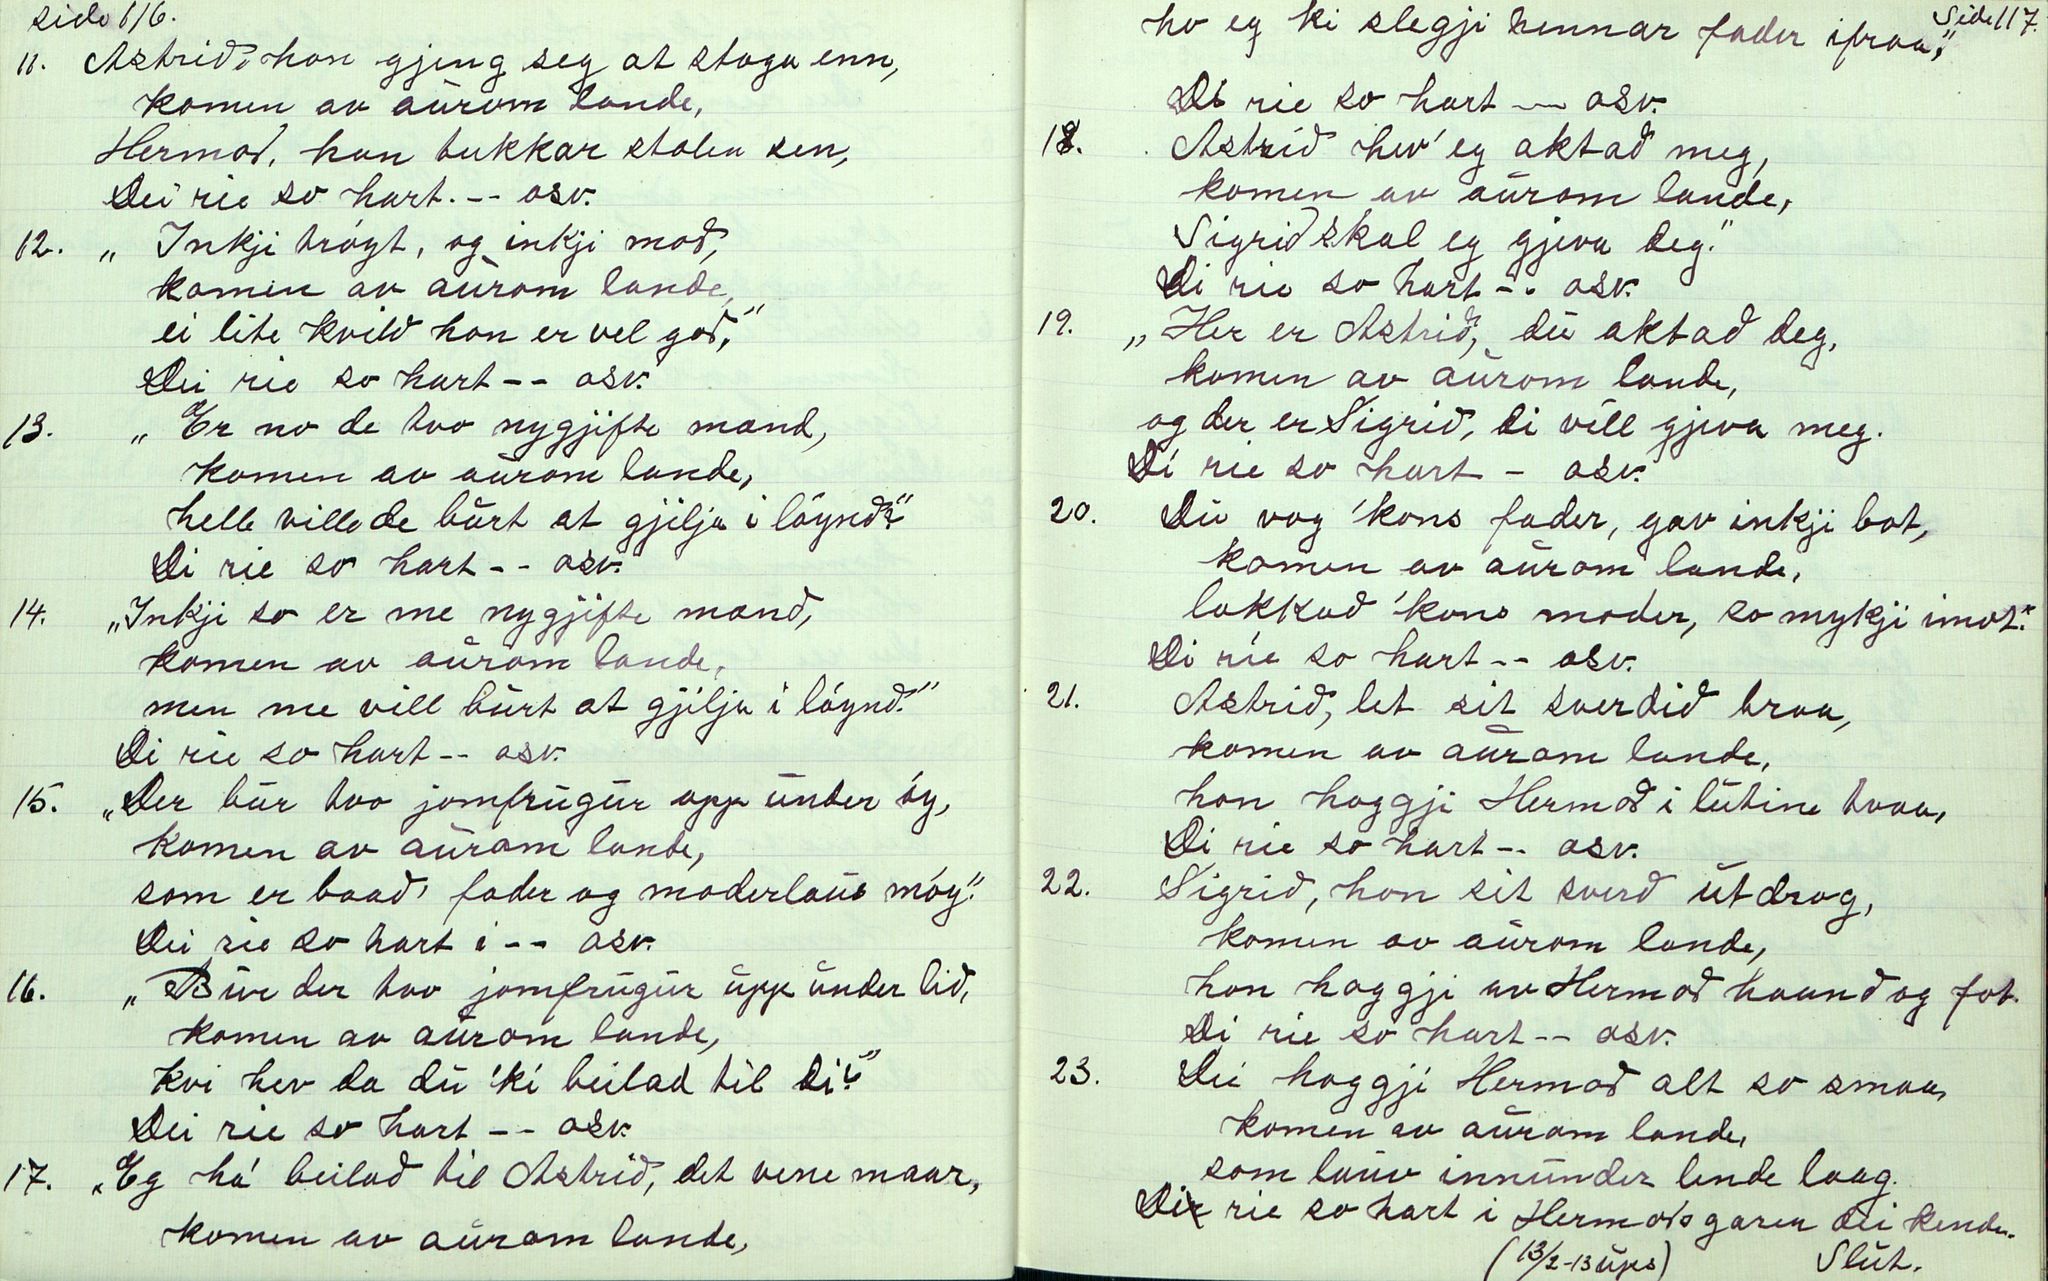 side 116.
11. Astrid, hon gjeng seg at stogu enn,
komen av aûrom lande,
Hermod, han tukkar stolen sen,
Dei rie so hart. -- osv.
12. „Inkji tróyt, og inkji mod,
komen av aûrom lande,
ei lite kvild hon er vel god,"
Dei rie so hart -- osv.
13. „Er no de tvo nygjifte mænd,
komen av aûrom lande,
helle ville de bûrt at gjilja i lóynd?"
Di rie so hart -- osv.
14. „Inkji so er me nygjifte mænd,
komen av aûrom lande,
men me vill bûrt at gjilja i lóynd."
Di rie so hart -- osv.
15. „Der bûr tvo jomfrûgûr upp ûnder óy,
komen av aûrom lande,
som er baad' fader og moderlaûs móy."
Dei rie so hart i -- osv.
16. „Bûr der tvo jomfrûgûr ûpp ûnder lid,
komen av aûrom lande,
kvi hev da dû 'ki beilad til Di?"
Dei rie so hart -- osv.
17. „Eg há beilad til Astrid, det vene maar,
komen av aûrom lande,
Side 117.
ho eg ki slegji hennar fader ifraa,"
Di rie so hart -- osv.
18. Astrid hev' eg aktad meg,
komen av aûrom lande,
Sigrid skal eg gjeva deg."
Di rie so hart -- osv.
19. „Her er Astrid, dû aktad deg,
komen av aûrom lande,
og der er Sigrid, di vill gjeva meg.
Di rie so hart - osv.
20. Dû vog 'kons fader, gav inkji bot,
komen av aûrom lande,
lokkad 'kons moder, so mykji imot."
Di rie so hart -- osv.
21. Astrid, let sit sverdid braa,
komen av aûrom lande,
hon hoggji Hermod i lûtine tvaa,
Di rie so hart -- osv.
22. Sigrid, hon sit sverd ût drog,
komen av aûrom lande,
hon hoggji av Hermod haand og fot.
Di rie so hart -- osv.
23. Dei hoggji Hermod alt so smaa,
komen av aûrom lande,
som lauv innûnder lende laag.
Di rie so hart i Hermods garen dei kende.
(13/2-13 ûps) Slût.